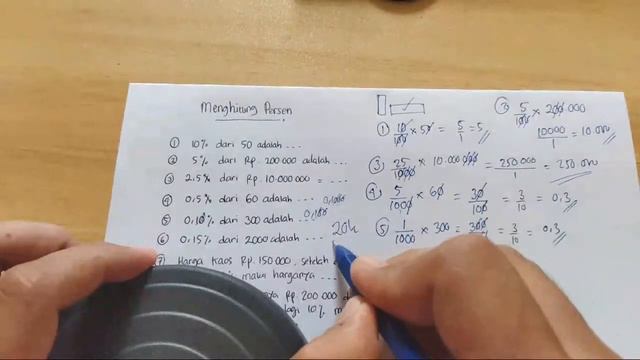 Menghitung Persen
① 10% dari 50 adalah ...
② 5% dari Rp. 200 000 adalah ...
③ 2,5% dari Rp. 10.000.000 = ...
④ 0,5% dari 60 adalah ...
⑤ 0,10% dari 300 adalah ...
⑥ 0,15% dari 2000 adalah ...
⑦ Harga Kaos Rp. 150.000, setelah
maka harganya ...
Rp. 200.000
lagi 10%
0,100
20k
① 10/100 × 50 = 5/1 = 5
5/100 × 200.000
10000/1 = 10.000
③ 25/1000 × 10.000.000 = 250.000/1 = 250.000
④ 5/1000 × 60 = 30/100 = 3/10 = 0,3
⑤ 1/1000 × 300 = 300 = 3/10 = 0,3